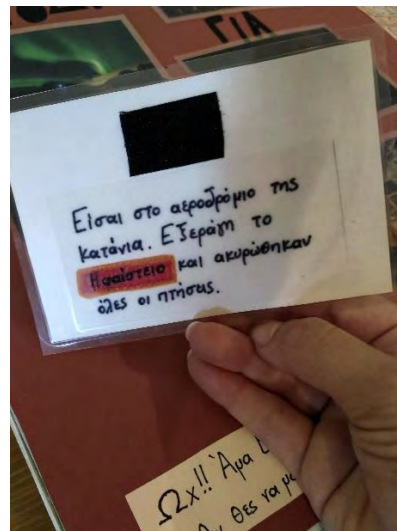 ΓΙΑ
Είσαι στο αεροδρόμιο της
κατάνια. Εξεράγη το
Ηφαίστειο και ακυρώθηκαν
όλες οι πτήσεις.
Ωχ!! Άμα
θες να με